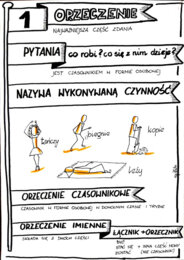 1 ORZECZENIE
NAJWAŻNIEJSZA CZĘŚĆ ZDANIA
PYTANIA co robi? co się z nim dzieje?
JEST CZASOWNIKIEM W FORMIE OSOBOWEJ
NAZYWA WYKONYWANĄ CZYNNOŚĆ
tańczy
biegnie
kopie
leży
ORZECZENIE CZASOWNIKOWE
CZASOWNIK W FORMIE OSOBOWEJ W DOWOLNYM CZASIE I TRYBIE
ORZECZENIE IMIENNE
SKŁADA SIĘ Z DWÓCH CZĘŚCI
ŁĄCZNIK + ORZECZNIK
BYĆ
STAĆ SIĘ + INNA CZĘŚĆ MOWY
ZOSTAĆ (NIE CZASOWNIK)